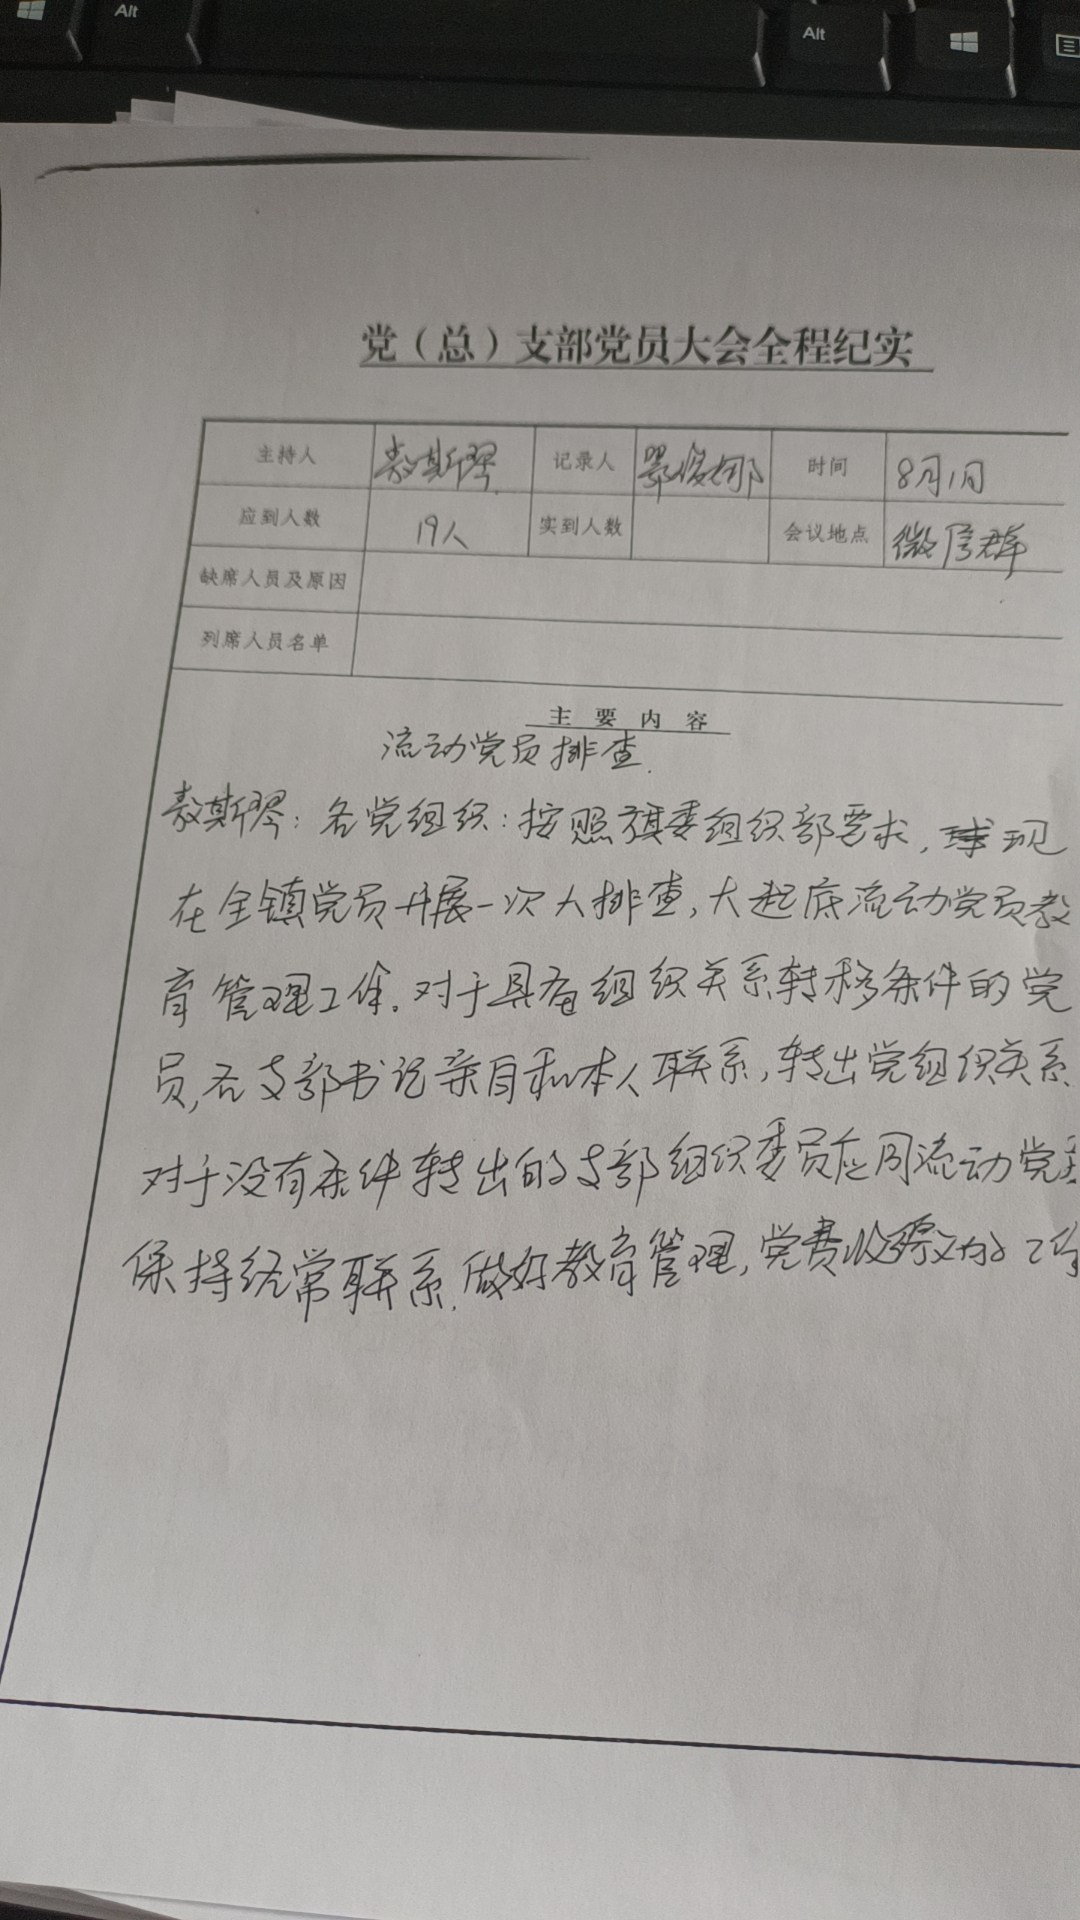 Alt
Alt
党（总）支部党员大会全程纪实
主持人 敖斯琴 记录人 鄂俊娜 时间 8月1日
应到人数 19人 实到人数 会议地点 微信群
缺席人员及原因
列席人员名单
主要内容
流动党员排查.
敖斯琴：各党组织：按照旗委组织部要求，现
在全镇党员开展一次大排查，大起底流动党员教
育管理工作.对于具备组织关系转移条件的党
员，各支部书记亲自和本人联系，转出党组织关系
对于没有条件转出的支部组织委员应同流动党
保持经常联系.做好教育管理，党费收缴 工作